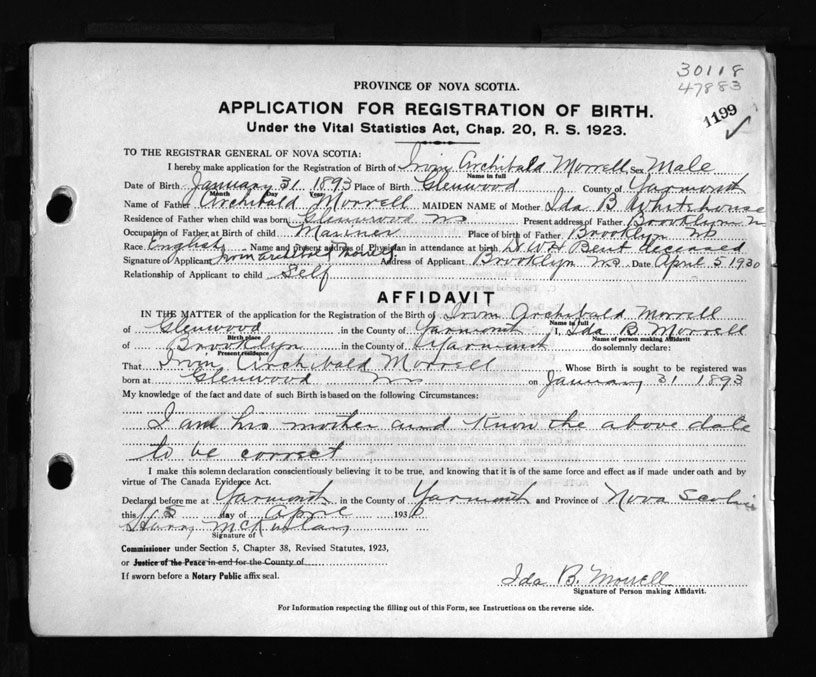 30118
47883
1199
PROVINCE OF NOVA SCOTIA.
APPLICATION FOR REGISTRATION OF BIRTH.
Under the Vital Statistics Act, Chap. 20, R. S. 1923.
TO THE REGISTRAR GENERAL OF NOVA SCOTIA:
I hereby make application for the Registration of Birth of Irvin Archibald Morrell Sex Male
Name in full
Date of Birth January 31 1893 Place of Birth Glenwood County of Yarmouth
Month Day Year
Name of Father Archibald Morrell MAIDEN NAME of Mother Ida B Whitehouse
Residence of Father when child was born Glenwood NS Present address of Father Brooklyn N
Occupation of Father at Birth of child Mariner Place of birth of Father Brooklyn NS
Race English Name and Present address of Physician in attendance at birth Dr W H Bent deceased
Signature of Applicant Irvin Archibald Morrell Address of Applicant Brooklyn NS Date April 5 1930
Relationship of Applicant to child Self
AFFIDAVIT
IN THE MATTER of the application for the Registration of the Birth of Irvin Archibald Morrell
Name in full
of Glenwood in the County of Yarmouth I, Ida B Morrell
Birth place Name of person making Affidavit
of Brooklyn in the County of Yarmouth do solemnly declare:
Present residence
That Irvin Archibald Morrell Whose Birth is sought to be registered was
born at Glenwood NS on January 31 1893
My knowledge of the fact and date of such Birth is based on the following Circumstances:
I am his mother and know the above date
to be correct
I make this solemn declaration conscientiously believing it to be true, and knowing that it is of the same force and effect as if made under oath and by
virtue of The Canada Evidence Act.
Declared before me at Yarmouth in the County of Yarmouth and Province of Nova Scotia
this day of April 193
Harry
Signature of
Commissioner under Section 5, Chapter 38, Revised Statutes, 1923,
or Justice of the Peace in and for the County of
If sworn before a Notary Public affix seal.
Ida B. Morrell
Signature of Person making Affidavit.
For Information respecting the filling out of this Form, see Instructions on the reverse side.